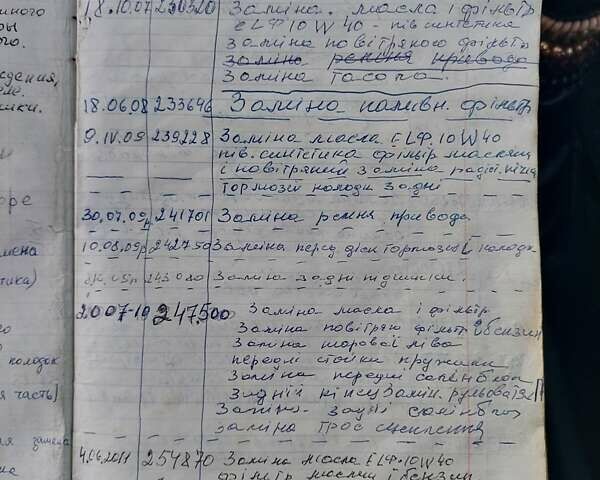 много
ры
го.
ждения,
ле.
шки.
ре
мена
тика)
колодок
я часть)
ая замена
18.10.07 230320 Заміна. масла і фільтр
ELФ 10W40 - пів синтетика
Заміна повітряного фільтр
Заміна ремня привода
Заміна Тосола.
18.06.08 233646 Заміна паливн. фільтр
9.IV.09 239228 Заміна масла ELФ.10W40
пів.синтетика фільтр масляни
і повітряний заміна
тормозні колодки задні
30.07.09р 241701 Заміна ремня привода
10.08.09р 242750 Заміна перед диск Тормозні колодк
243000 Заміна задні підшипник.
20.07-10 247.500 Заміна масла і фільтр
Заміна повітряно фільт. бензин
Заміна шарова ліва
передні стойки пружини
Заміна передні саленблок
задній кінец Замін. рульової
Замін. задні саленблок
заміна Трос сцеплення
4.06.2011 254870 Заміна масла ELФ.10W40
фільтр масляни і бензин